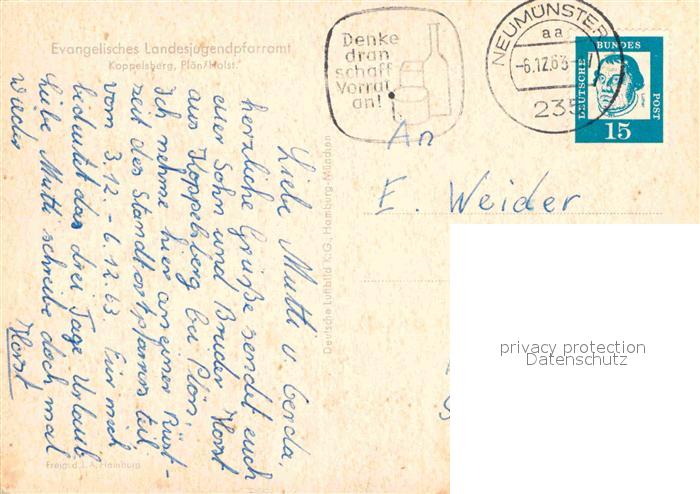 Evangelisches Landesjugendpfarramt
Koppelsberg, Plön/Holst.
Liebe Mutti u. Gerda,
herzliche Grüße sendet euch
euer Sohn und Bruder Horst
aus Koppelsberg bei Plön.
Ich nehme hier an einer Rüst-
zeit des Standortpfarrers teil
vom 3.12. - 6.12.63. Für mich
bedeutet das drei Tage Urlaub.
Liebe Mutti schreibe doch mal
wieder
Horst
Freig. d. L. A. Hamburg
Deutsche Luftbild K.G. Hamburg-München
Denke
dran
schaff
Vorrat
an!
NEUMÜNSTER
aa
-6.12.63-
235
DEUTSCHE
BUNDES
POST
Luther
15
An
E. Weider
privacy protection
Datenschutz